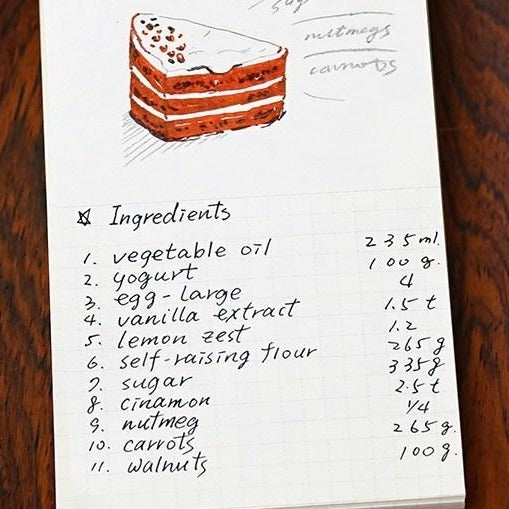 nutmegs
carrots
☆ Ingredients
1. vegetable oil 235 ml.
2. yogurt 100 g.
3. egg-large 4
4. vanilla extract 1.5 t
5. lemon zest 1.2
6. self-raising flour 265 g
7. sugar 335g
8. cinamon 2.5 t
9. nutmeg 1/4
10. carrots 265 g.
11. walnuts 100 g.